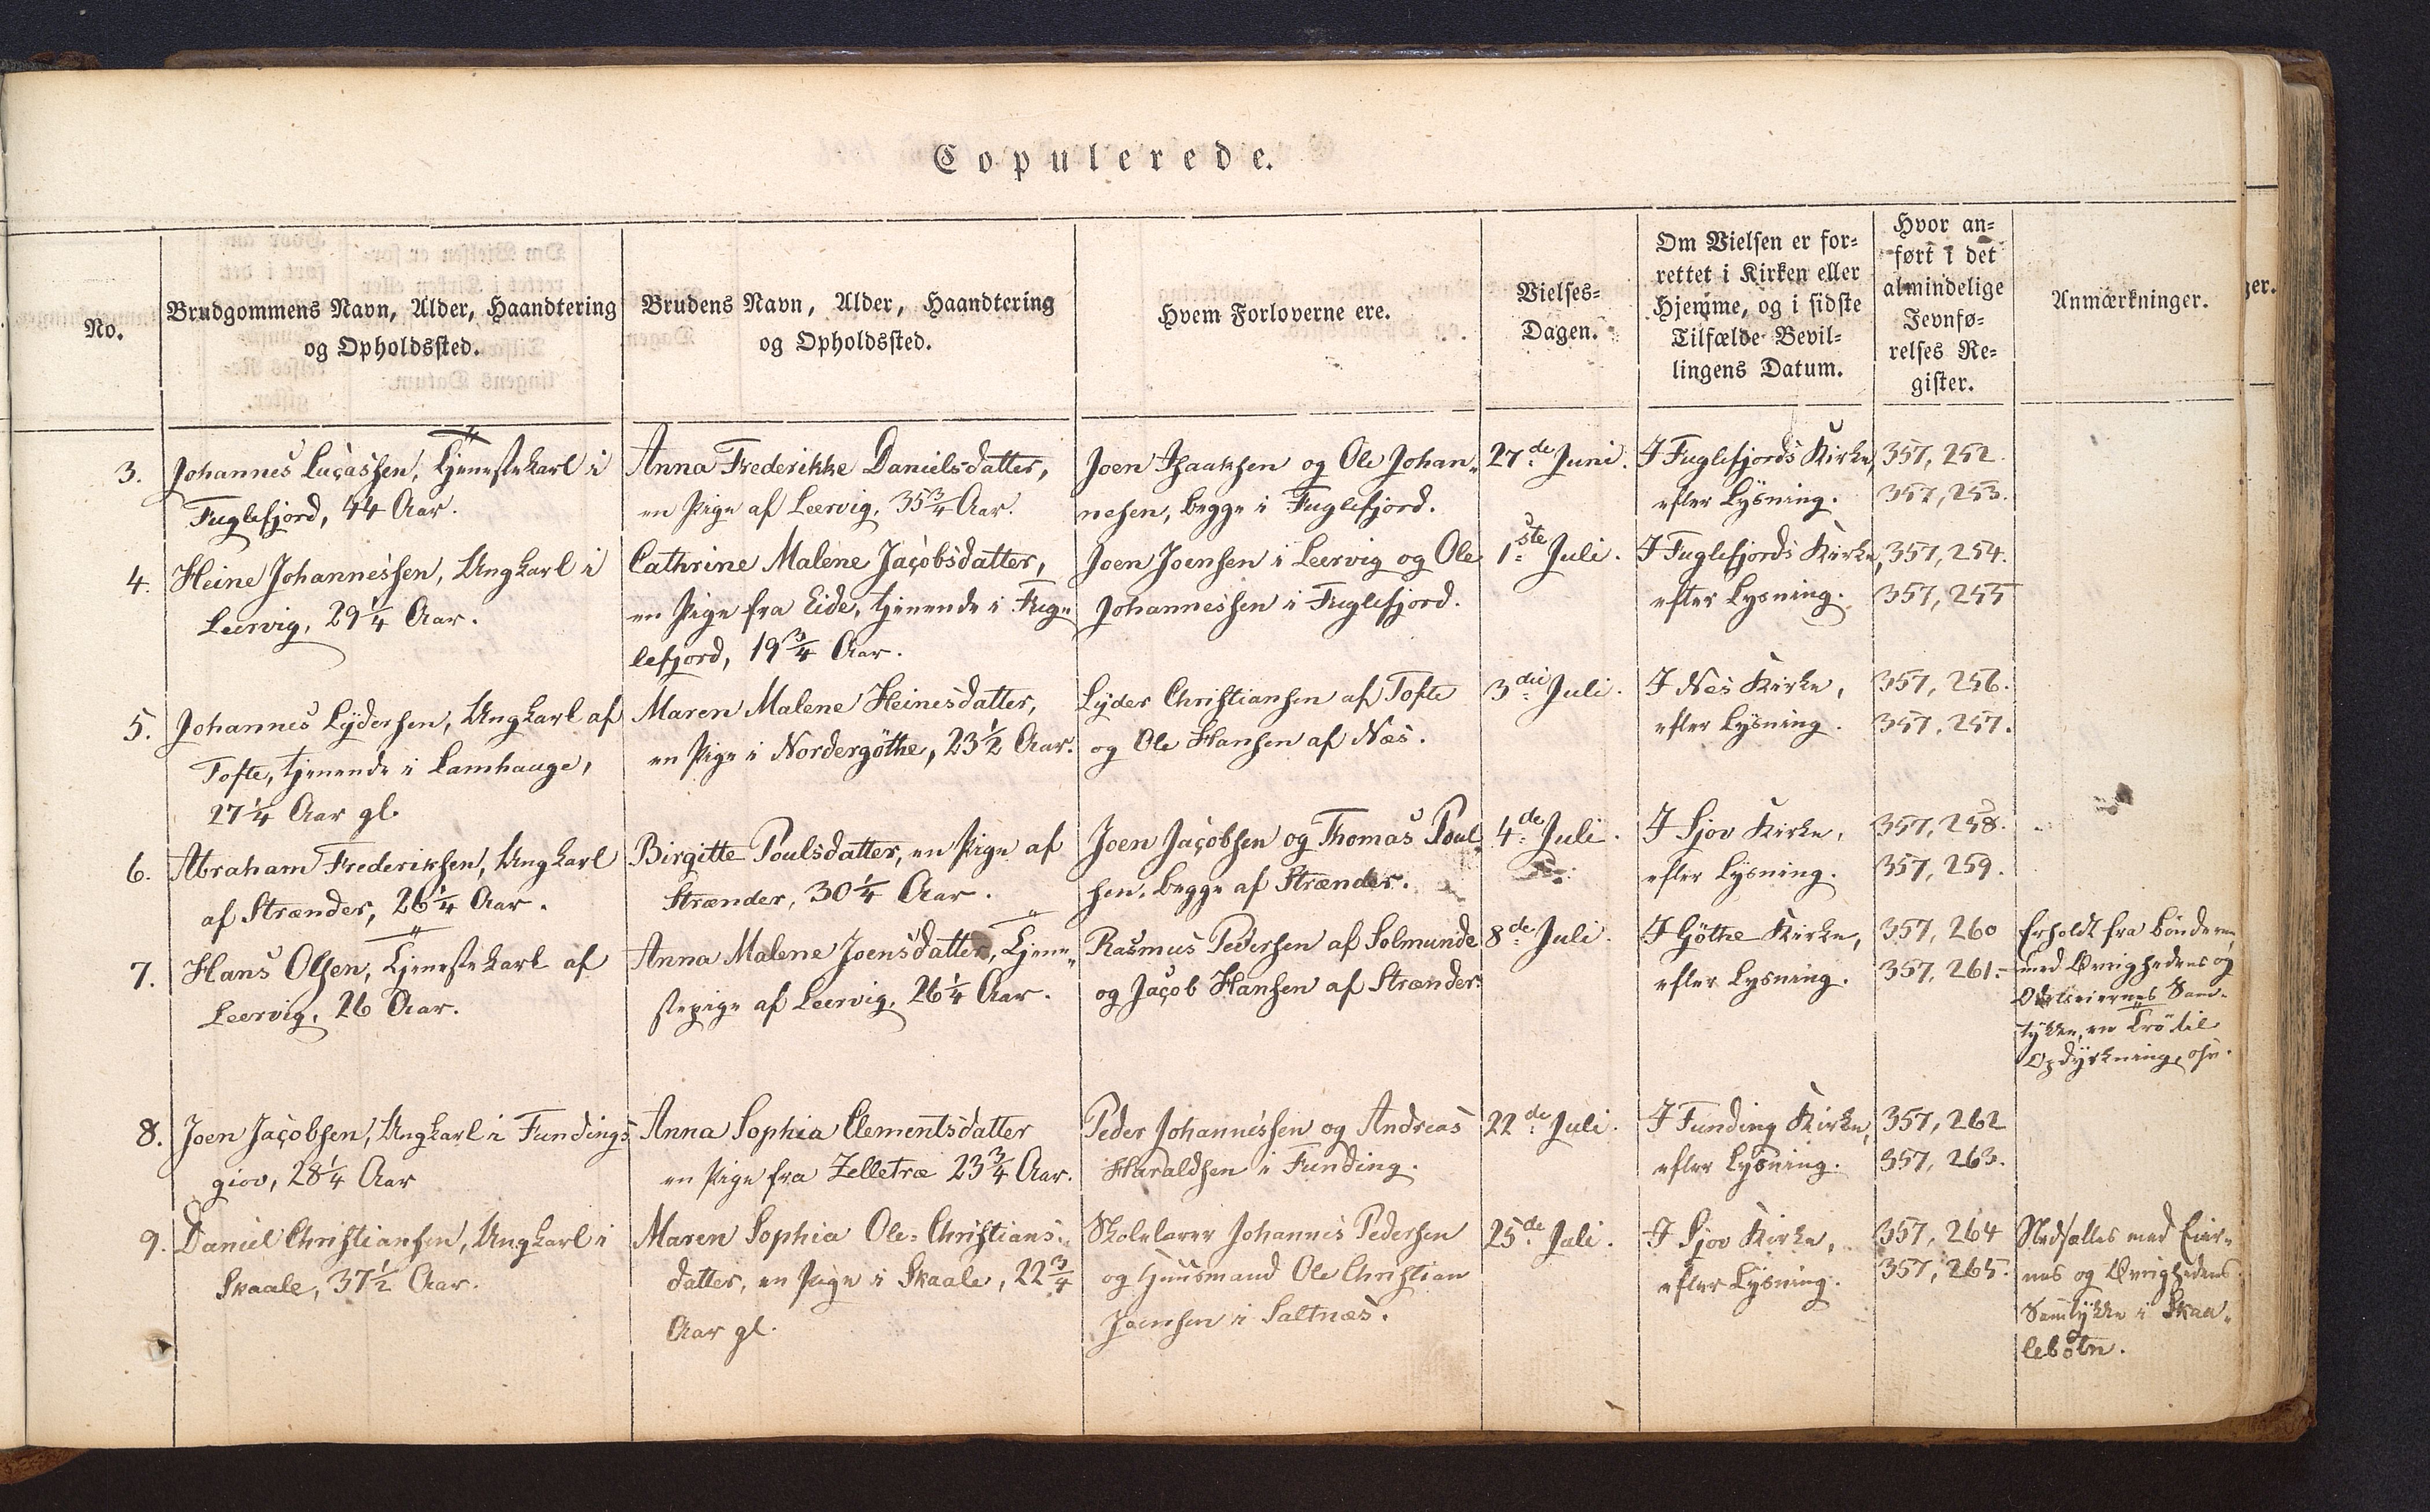 Copulerede.
No.
Brudgommens Navn, Alder, Haandtering
og Opholdssted.
Brudens Navn, Alder, Haandtering
og Opholdssted.
Hvem Forloverne ere.
Vielses-
Dagen.
Om Vielsen er for-
rettet i Kirken eller
Hjemme, og i sidste
Tilfælde Bevil-
lingens Datum.
Hvor an-
ført i det
almindelige
Jevnfø-
relses Re-
gister.
Anmærkninger.
ger.
3.
Johannes Lucassen, Tjenestekarl i
Fuglefjord, 44 Aar.
Anna Frederikke Danielsdatter,
en Pige af Leervig, 35 3/4 Aar.
Joen Isaaksen og Ole Johan-
nesen, begge i Fuglefjord.
27de Juni.
I Fuglefjords Kirke,
efter Lysning.
357, 252.
357, 253.
4.
Heine Johannessen, Ungkarl i
Leervig, 29 1/4 Aar.
Cathrine Malene Jacobsdatter,
en Pige fra Eide, tjenende i Fug-
lefjord, 19 3/4 Aar.
Joen Joensen i Leervig og Ole
Johannessen i Fuglefjord.
1ste Juli.
I Fuglefjords Kirke,
efter Lysning.
357, 254.
357, 255
5.
Johannes Lydersen, Ungkarl af
Tofte, tjenende i Lamhauge,
27 1/4 Aar gl.
Maren Malene Heinesdatter,
en Pige i Nordergöthe, 23 1/2 Aar.
Lyder Christiansen af Tofte
og Ole Hansen af Næs.
3die Juli.
I Nes Kirke,
efter Lysning.
357, 256.
357, 257.
6.
Abraham Frederiksen, Ungkarl
af Strænder, 26 1/4 Aar.
Birgitte Poulsdatter, en Pige af
Strænder, 30 1/4 Aar.
Joen Jacobsen og Thomas Poul-
sen, begge af Strænder.
4de Juli.
I Sjov Kirke,
efter Lysning.
357, 258.
357, 259.
7.
Hans Olsen, Tjenestekarl af
Leervig, 26 Aar.
Anna Malene Joensdatter, Tjene-
stepige af Leervig, 26 1/4 Aar.
Rasmus Pedersen af Solmunde
og Jacob Hansen af Strænder.
8de Juli.
I Göthe Kirke,
efter Lysning.
357, 260
357, 261.
Erholdt fra Bönderne,
med Øvrighedens og
Odelseiernes Sam-
tykke, en Trö til
Opdyrkning, osv.
8.
Joen Jacobsen, Ungkarl i Fundings
giov, 28 1/4 Aar
Anna Sophia Clementsdatter
en Pige fra Zelletræ 23 3/4 Aar.
Peder Johannessen og Andreas
Haraldsen i Funding.
22de Juli.
I Funding Kirke,
efter Lysning.
357, 262
357, 263.
9.
Daniel Christiansen, Ungkarl i
Skaale, 37 1/2 Aar.
Maren Sophia Ole-Christians-
datter, en Pige i Skaale, 22 3/4
Aar gl.
Skolelærer Johannes Pedersen
og Huusmand Ole Christian
Joensen i Saltnæs.
25de Juli.
I Sjov Kirke,
efter Lysning.
357, 264
357, 265.
Nedsættes med Eier-
nes og Øvrighedens
Samtykke i Skaa-
lebotn.